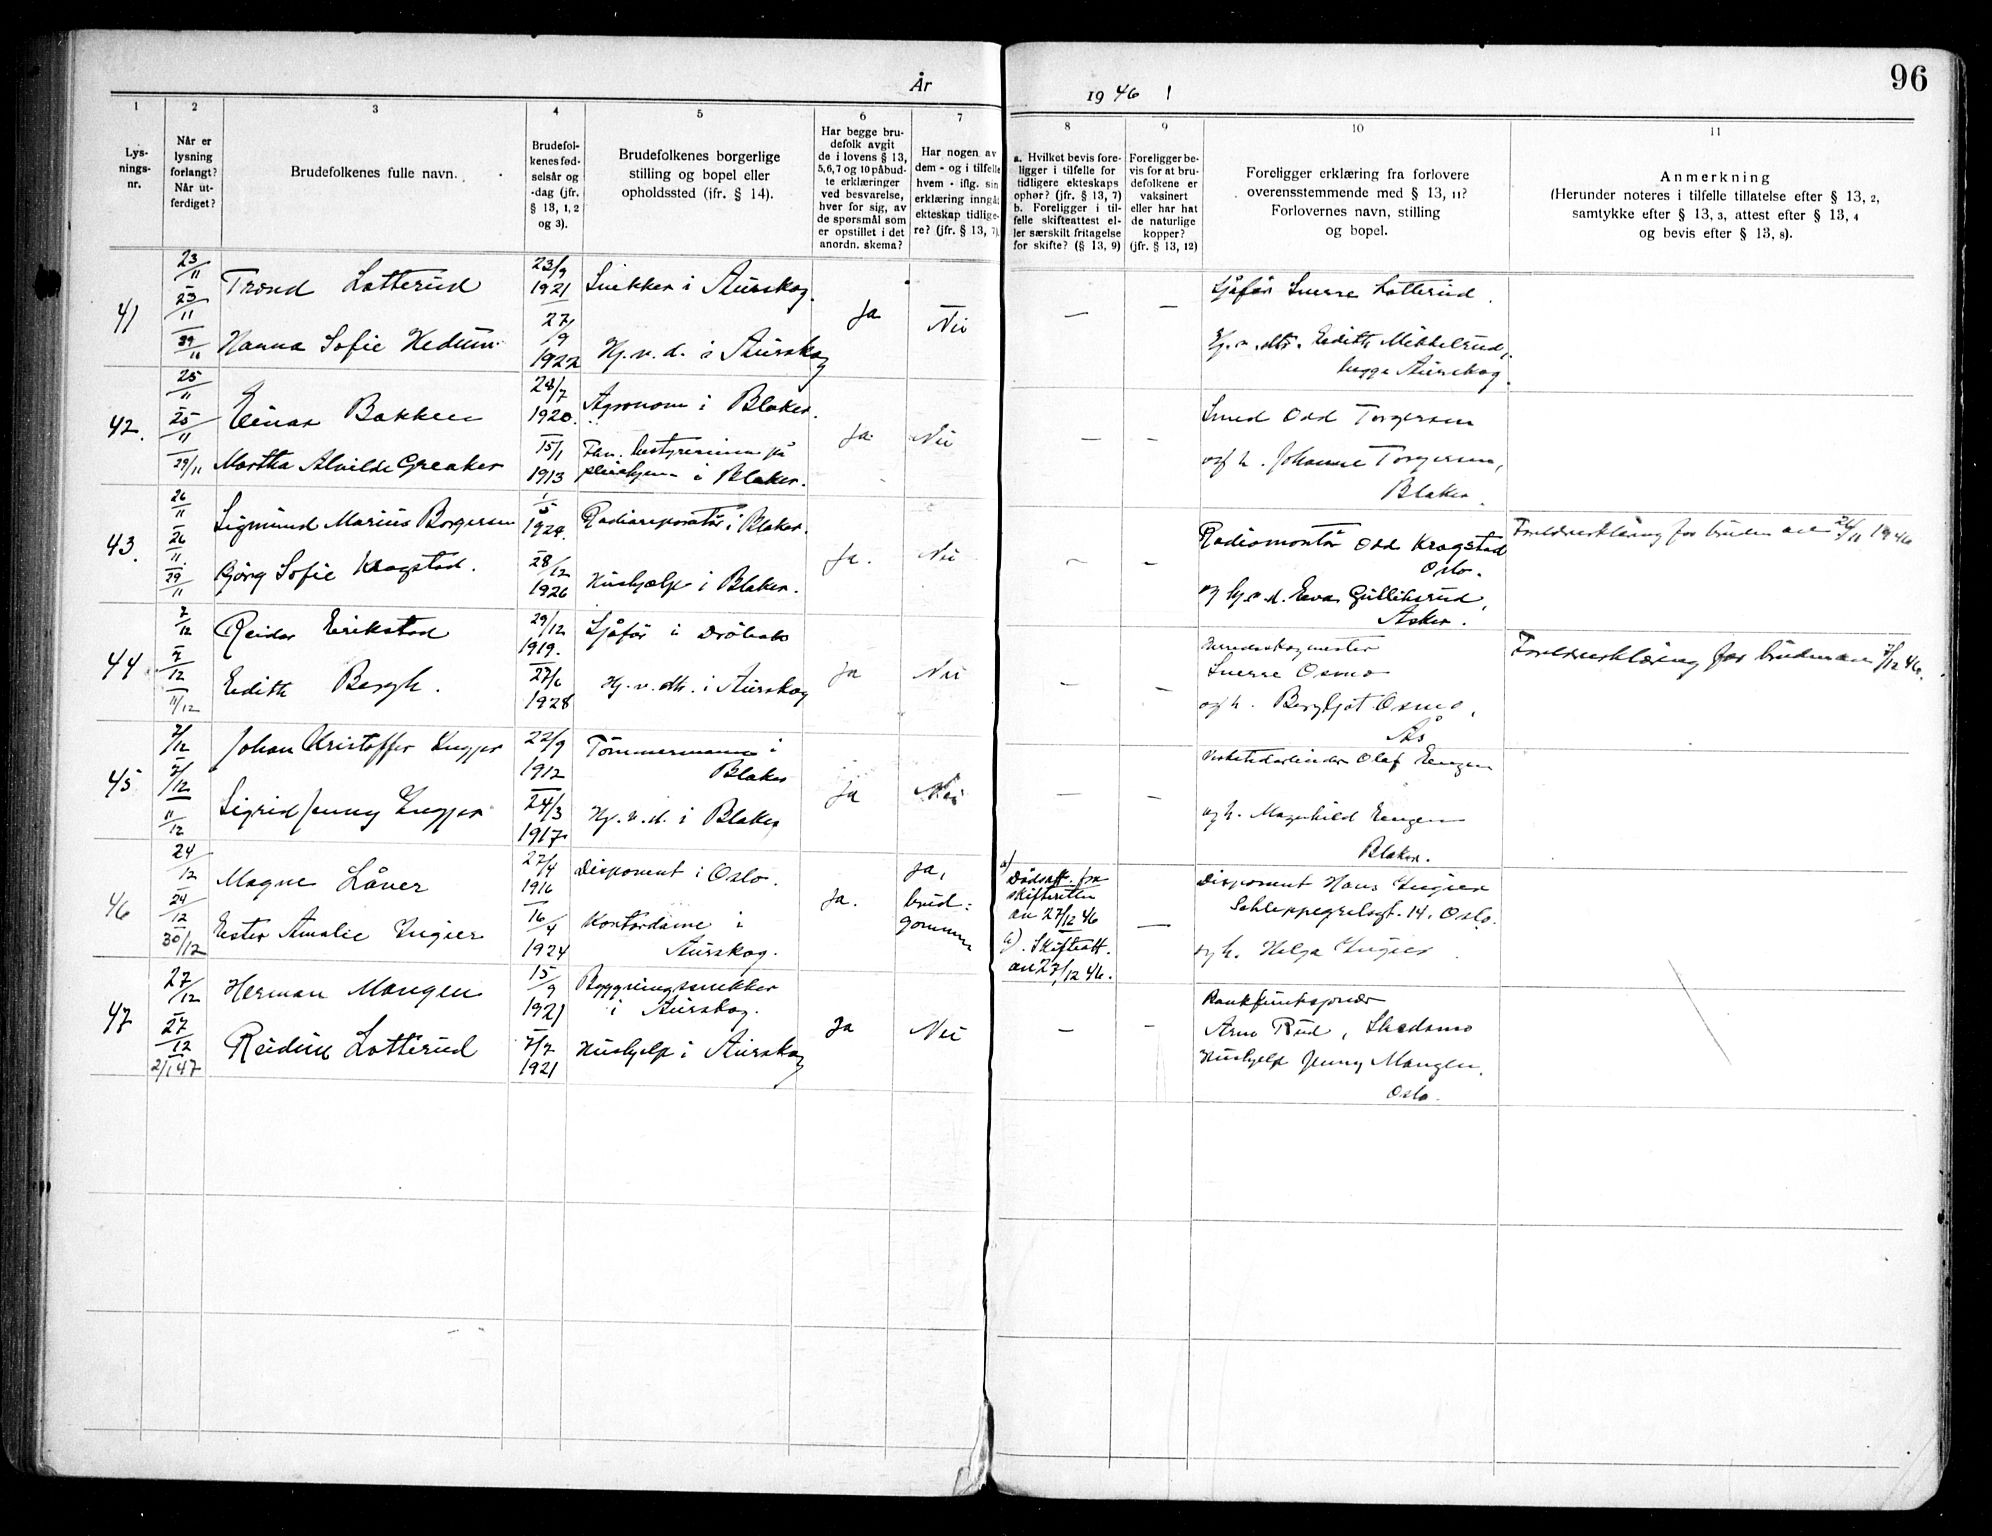 96
År
1946
1
2
3
4
5
6
7
8
9
10
11
Lys-
nings-
nr.
Når er
lysning
forlangt?
Når ut-
ferdiget?
Brudefolkenes fulle navn.
Brudefol-
kenes fød-
selsår og
-dag (jfr.
§ 13, 1, 2
og 3).
Brudefolkenes borgerlige
stilling og bopel eller
opholdssted (jfr. § 14).
Har begge bru-
defolk avgit
de i lovens § 13,
5,6,7 og 10 påbud-
te erklæringer
ved besvarelse,
hver for sig, av
de spørsmål som
er opstillet i det
anordn. skema?
Har nogen av
dem - og i tilfelle
hvem - iflg. sin
erklæring inngåt
ekteskap tidlige-
re? (jfr. § 13, 7).
a. Hvilket bevis fore-
ligger i tilfelle for
tidligere ekteskaps
ophør? (jfr. § 13, 7)
b. Foreligger i til-
felle skifteattest el-
ler særskilt fritagelse
for skifte? (§ 13, 9)
Foreligger be-
vis for at bru-
defolkene er
vaksinert
eller har hat
de naturlige
kopper?
(jfr. § 13, 12)
Foreligger erklæring fra forlovere
overensstemmende med § 13, 11?
Forlovernes navn, stilling
og bopel.
Anmerkning
(Herunder noteres i tilfelle tillatelse efter § 13, 2,
samtykke efter § 13, 3, attest efter § 13, 4
og bevis efter § 13, 8).
41
23/11
23/11
29/11
Trond Lotterud
Hanna Sofie Hedum
23/9
1921
27/9
1922
Snekker i Aurskog.
Hj.v.d. i Aurskog
Ja
Nei
—
—
Sjåfør Sverre Lotterud.
Hj.v.dtr. Edith Mikkelrud,
begge Aurskog.
42.
25/11
25/11
29/11
Einar Bakken
Martha Alvilde Greaker
28/7
1920.
15/1
1913
Agronom i Blaker.
i Blaker.
Ja.
Nei
—
—
Smed Odd Torgersen
og h. Johanne Torgersen,
Blaker.
43.
26/11
26/11
29/11
Sigmund Marius Borgersen
Bjørg Sofie Kragstad.
1/5
1924.
28/12
1926
Radioreparatør i Blaker.
Hushjælp i Blaker.
Ja.
Nei
—
—
Radiomontør Odd Kragstad
Oslo.
og hj.v.d. Eva Gulliksrud,
Asker.
Foreldreerklæring for bruden av 26/11 1946
44.
7/12
7/12
11/12
Reidar Erikstad
Edith Bergh.
29/12
1919.
27/6
1928
Sjåfør i Drøbak
Hj.v.dtr. i Aurskog
Ja
Nei
—
—
Herredsskogmester
Sverre Osmo
og h. Bergljot Osmo,
Ås
Foreldreerklæring for bruden av 7/12 46.
45
7/12
7/12
11/12
Johan Kristoffer Ingjer
Sigrid Jenny Ingjer
22/9
1912
24/3
1917
Tømmermann i
Blaker
Hj.v.d. i Blaker
Ja
Nei
—
—
Olaf Engen
og h. Magnhild Engen
Blaker.
46
24/12
24/12
30/12
Magne Låver
Ester Amalie Ingier
27/4
1916
16/4
1924
Disponent i Oslo.
Kontordame i
Aurskog.
Ja.
Ja,
brud-
gommen
a)
Dødsatt. fra
skifteretten
av 27/12 46
b). Skifteatt.
av 27/12 46.
—
Disponent Hans Ingier
Schleppegrelsgt. 14, Oslo.
og h. Helga Ingier
47
27/12
27/12
2/1 47
Herman Mangen
Reidun Lotterud
15/9
1921
7/7
1921
Bygningssnekker
i Aurskog.
Hushjelp i Aurskog
Ja
Nei
—
—
Bankfunksjonær
Arne Rud, Skedsmo
Hushjelp Jenny Mangen.
Oslo.